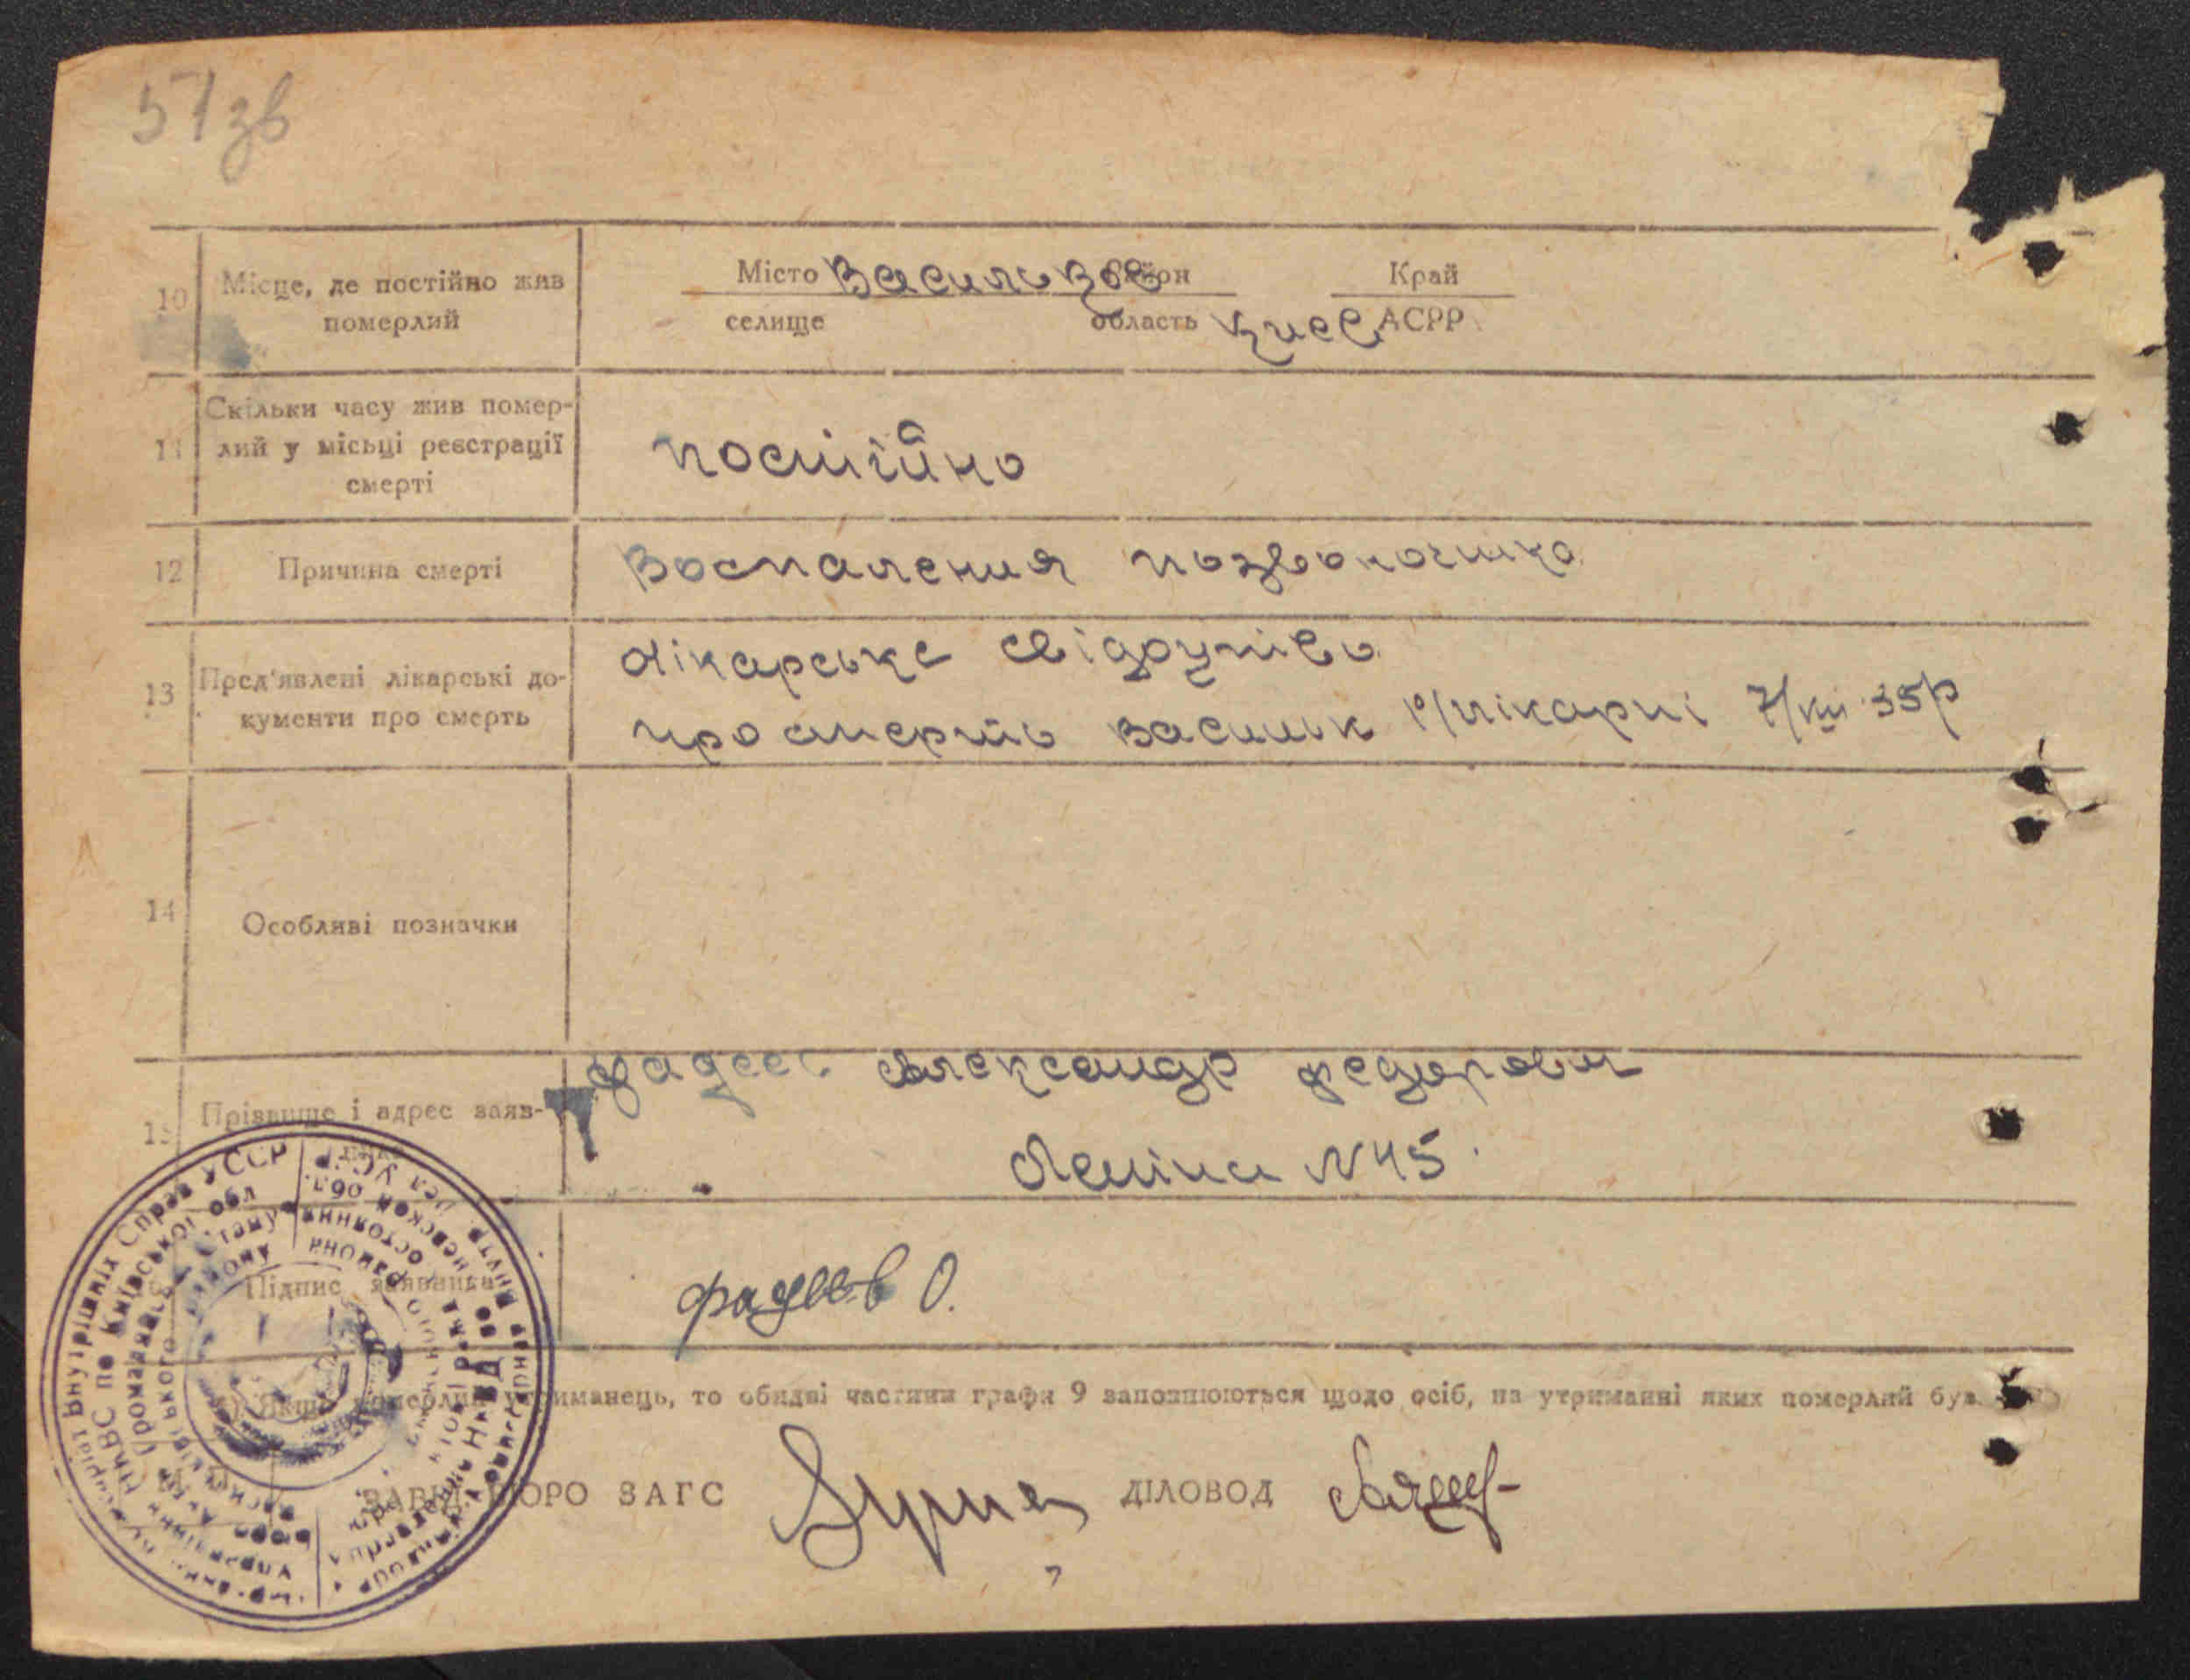 57зв
10 Місце, де постійно жив померлий
Місто Васильков район Край
селище область Киев АСРР
11 Скільки часу жив помер-
лий у місці реєстрації
смерті
постійно
12 Причина смерті
Воспаления позвоночника
13 Пред'явлені лікарські до-
кументи про смерть
Лікарське свідоцтво
про смерть Васильк р/лікарні 7/VIII 35р
14 Особливі позначки
15 Прізвище і адрес заяв-
Фадеев Александр Федорович
Леніна N45.
Підпис заявника
Фадеев О.
Якщо померлий утриманець, то обидві частини графи 9 заповнюються щодо осіб, на утриманні яких померлий був.
ЗАВІД. БЮРО ЗАГС
ДІЛОВОД
Внутрішніх Справ УССР
НКВС по Київської обл